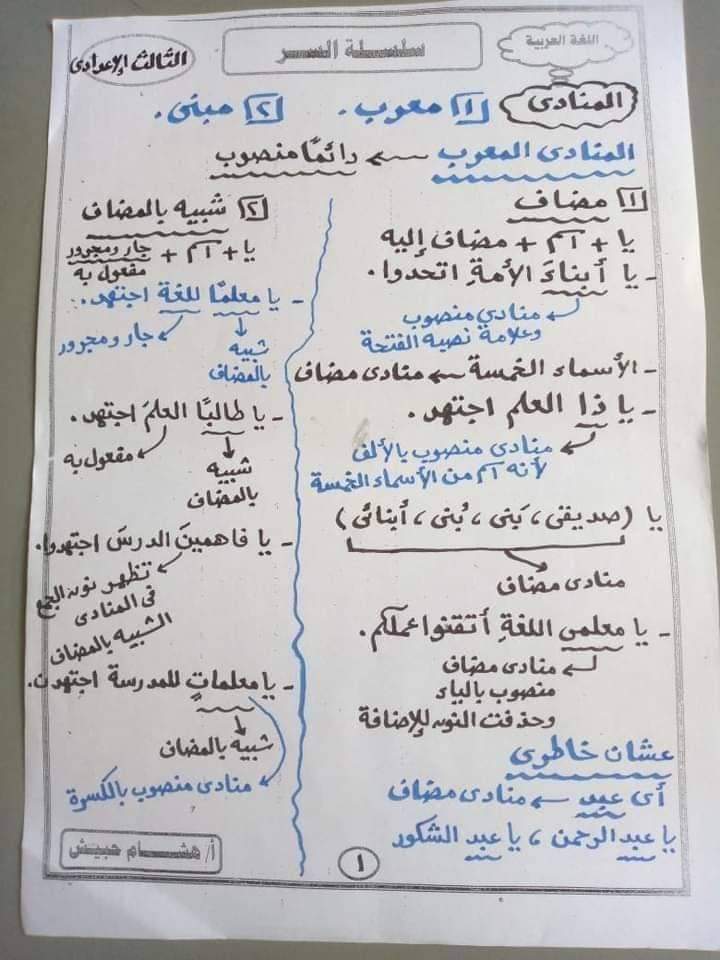 اللغة العربية
سلسلة السر
الثالث الإعدادى
المنادى ١ معرب . ٢ مبنى .
المنادى المعرب ← دائمًا منصوب
١ مضاف
يا + اسم + مضاف إليه
- يا أبناءَ الأمةِ اتحدوا .
منادى منصوب
وعلامة نصبه الفتحة
- الأسماء الخمسة ← منادى مضاف
- يا ذا العلم اجتهد .
منادى منصوب بالألف
لأنه اسم من الأسماء الخمسة
يا ( صديقى ، بَنى ، بُنى ، أبنائى )
منادى مضاف
- يا معلمى اللغةِ أتقنوا عملكم .
منادى مضاف
منصوب بالياء
وحذفت النون للإضافة
عشان خاطرى
أى عبد ← منادى مضاف
يا عبد الرحمن ، يا عبد الشكور
٢ شبيه بالمضاف
يا + اسم + جار ومجرور
مفعول به
- يا معلمًا للغة اجتهد .
جار ومجرور
شبيه
بالمضاف
- يا طالبًا العلمَ اجتهد .
مفعول به
شبيه
بالمضاف
- يا فاهمينَ الدرسَ اجتهدوا .
تظهر نون الجمع
فى المنادى
الشبيه بالمضاف
- يا معلماتٍ للمدرسة اجتهدن .
شبيه بالمضاف
منادى منصوب بالكسرة
أ/ هشام حبيش
١